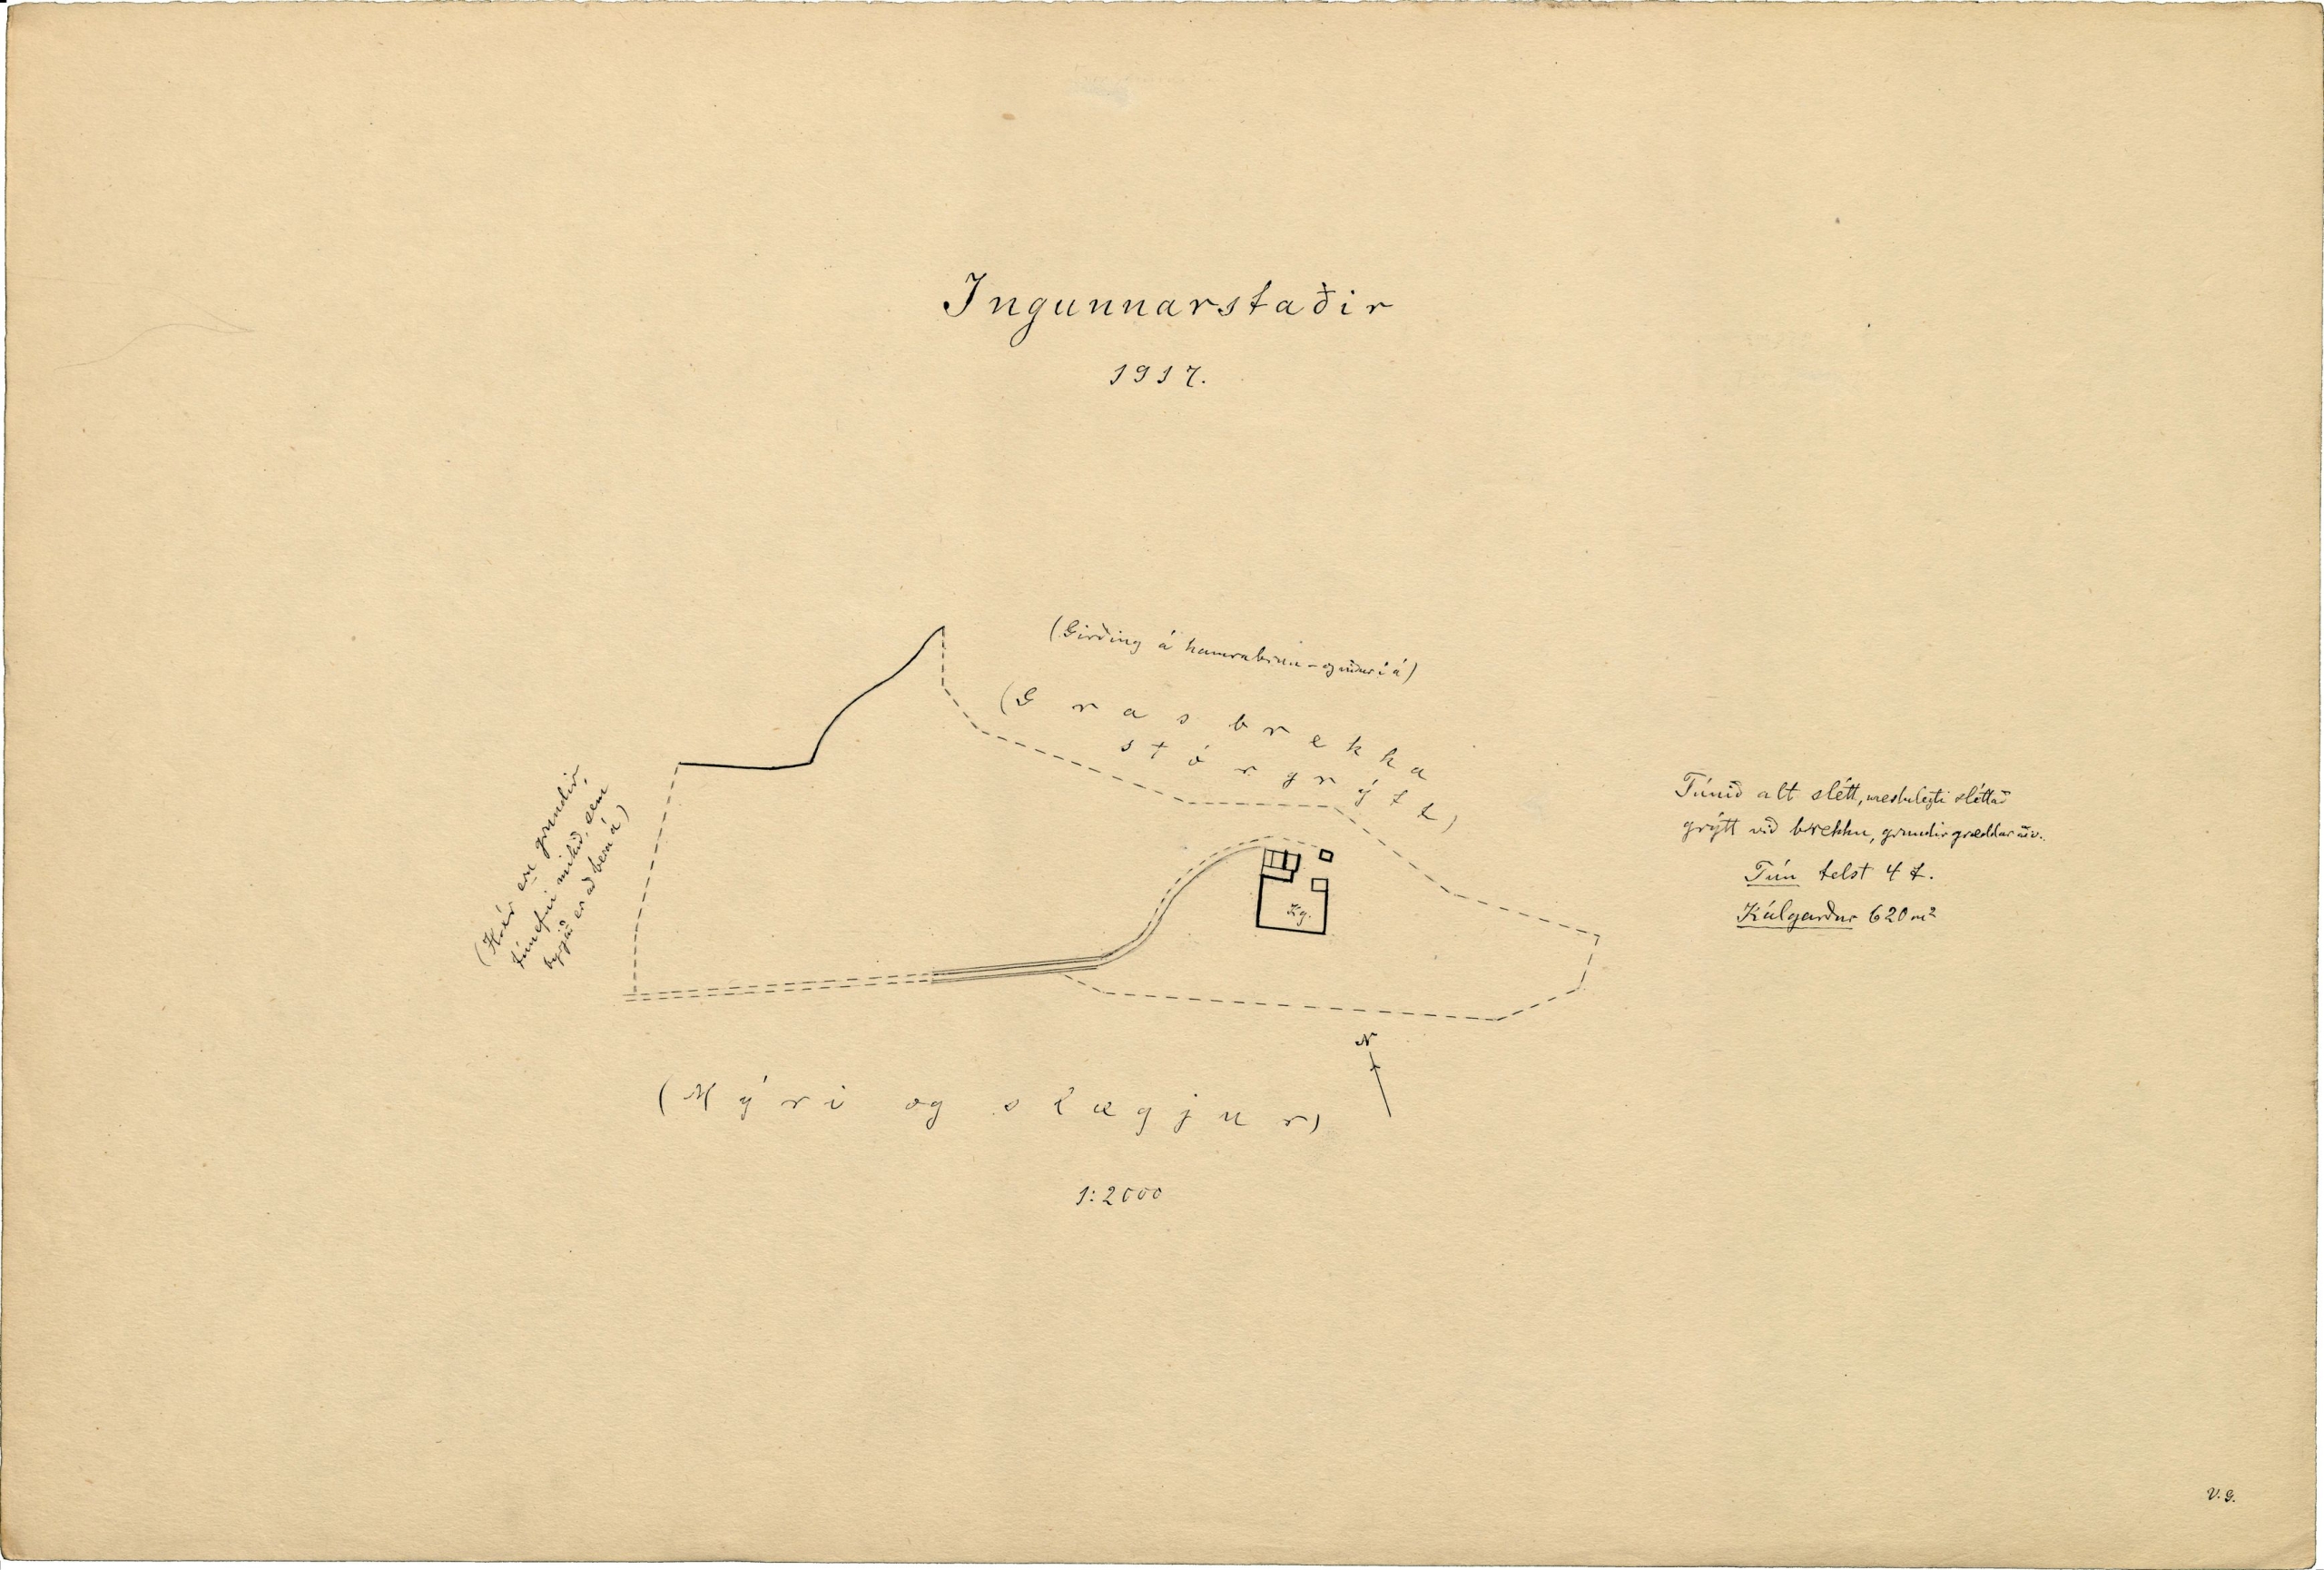 Ingunnarstaðir
1917.
(Girðing á hamrabrún - og niður í á)
(Grasbrekka
stórgrýtt)
(Hér eru grundir,
túnefni mikið, sem
byrjað er að bera á)
Túnið alt slétt, mestulegti sléttað
grýtt við brekku, grundir græddar
Tún telst 4 t.
Kálgarður 620 m²
Kg.
N
(Mýri og slægjur)
1:2000
V.G.